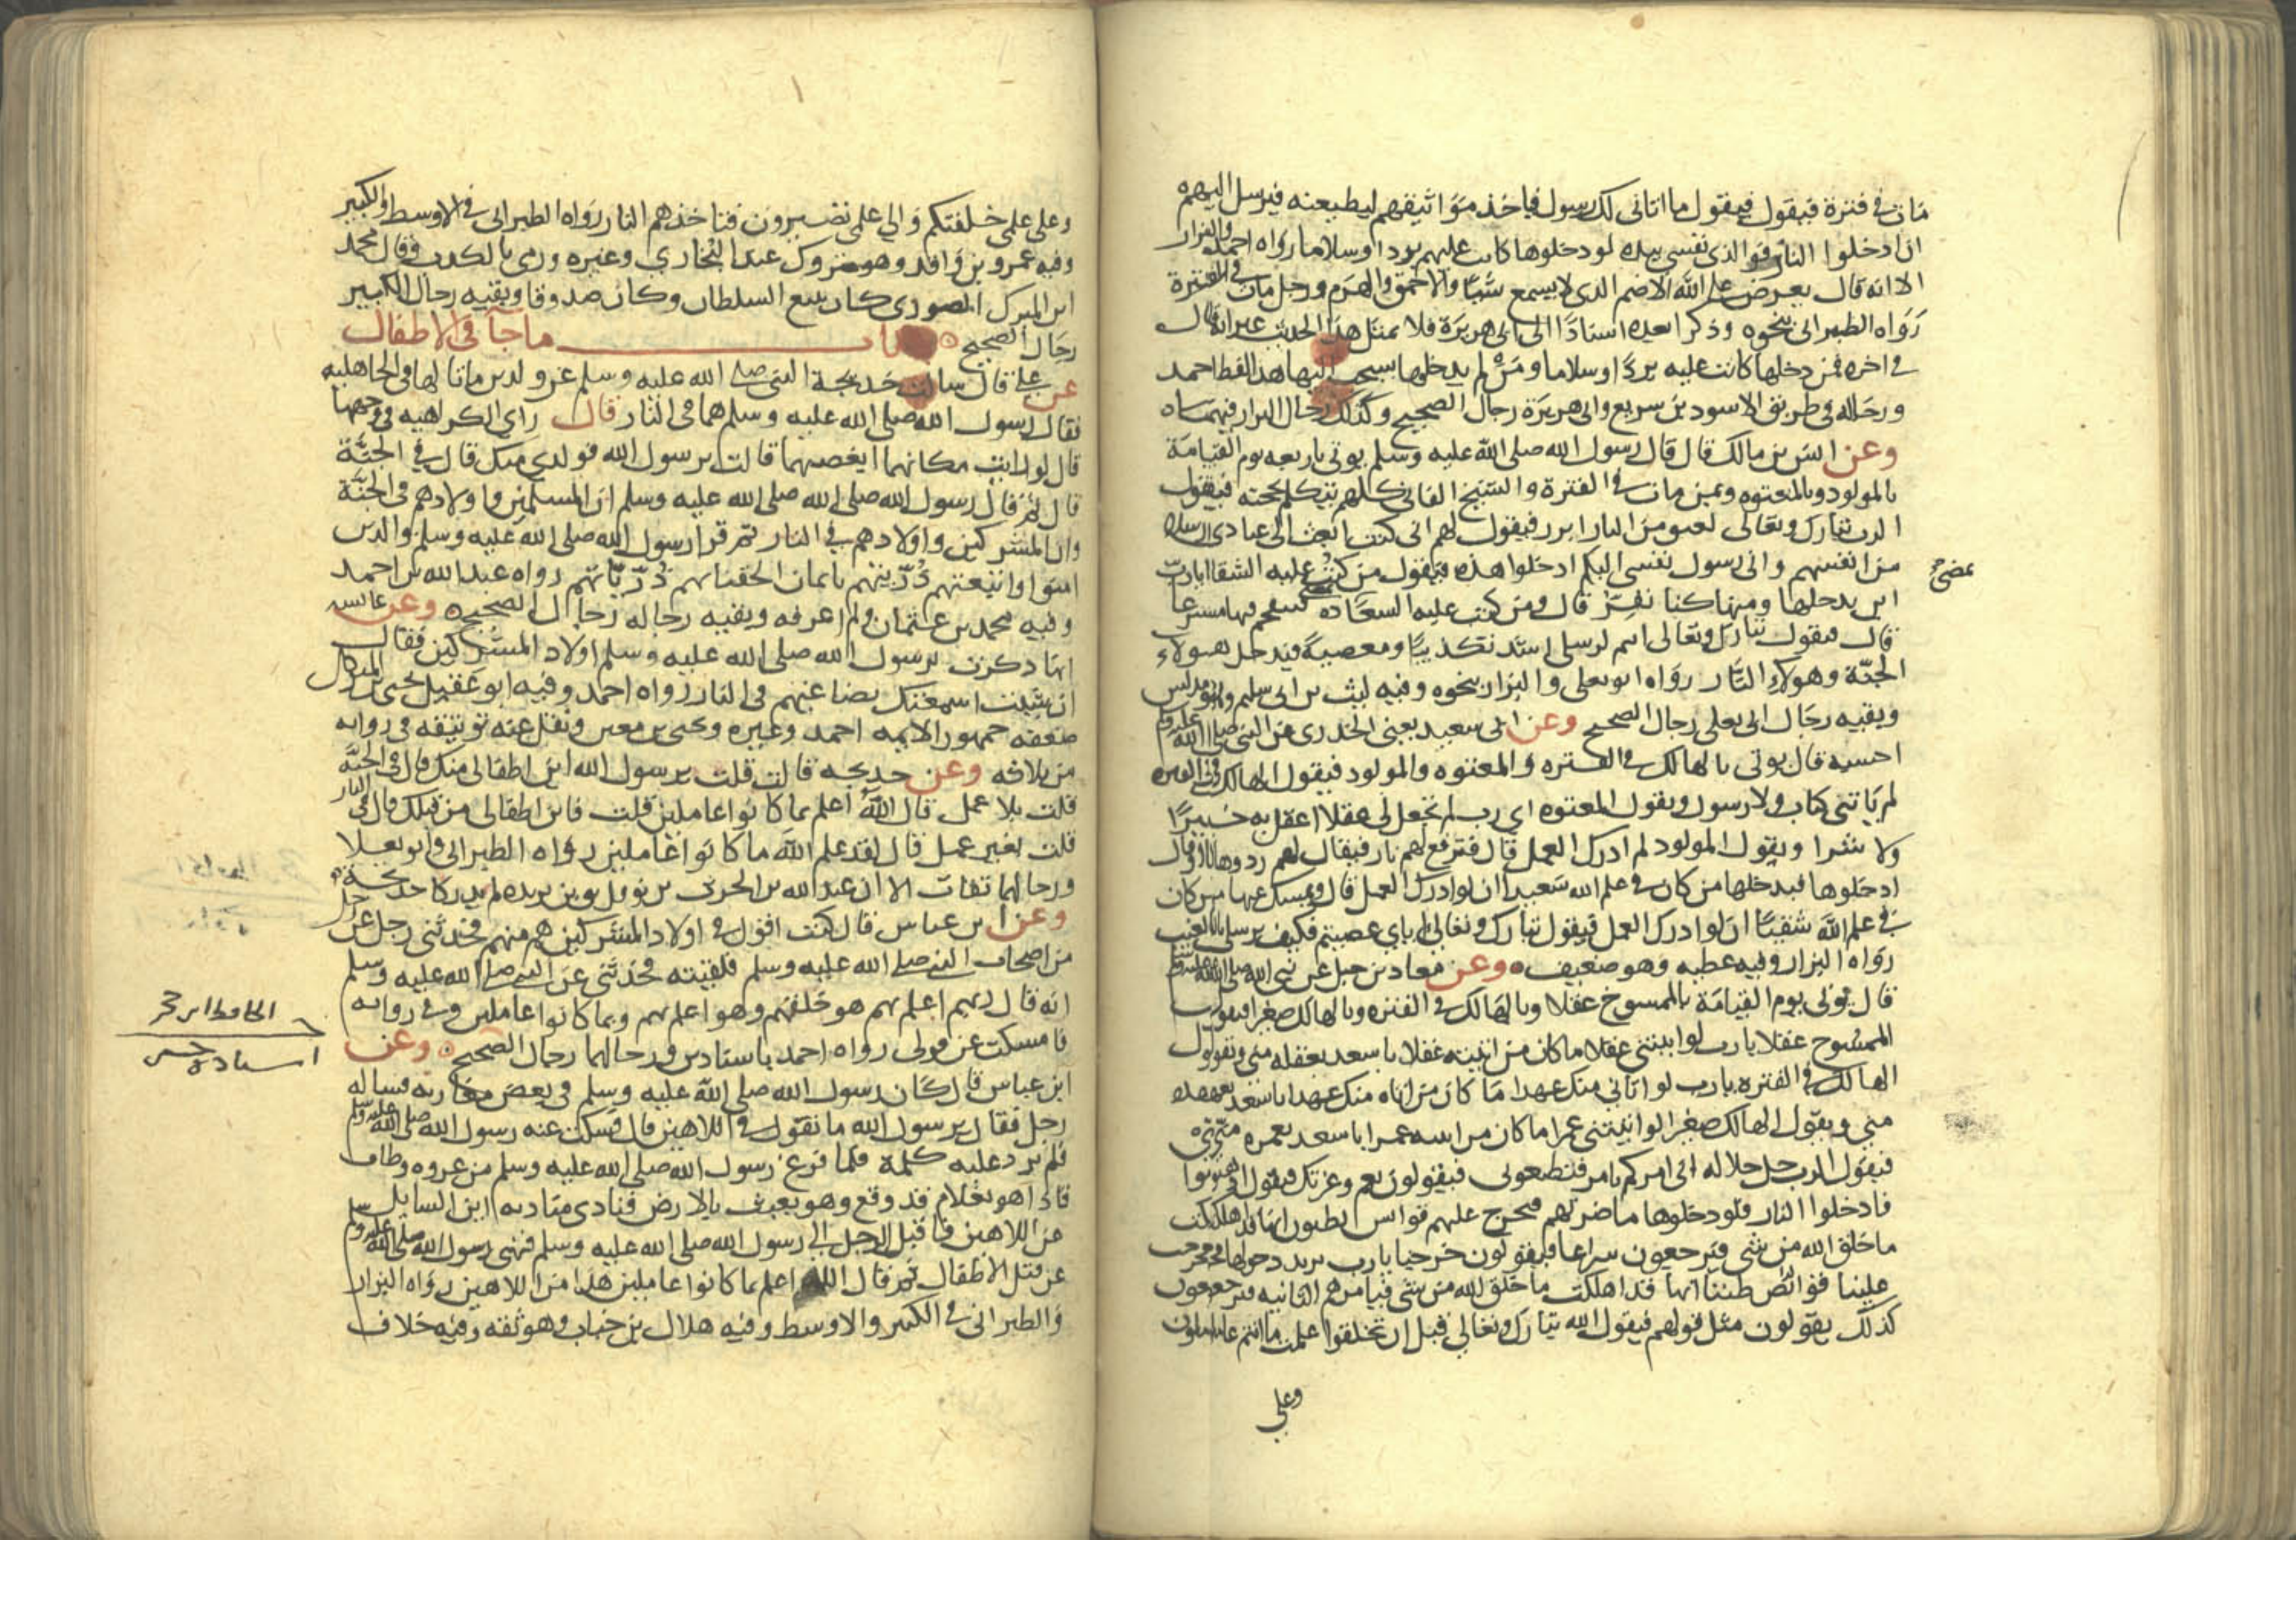 مات في فترة فيقول فيقول ما اتاني لك رسول فياخذ مواثيقهم ليطيعنه فيرسل اليهم
ان ادخلوا النار فوالذي نفسي بيده لو دخلوها كانت عليهم بردا وسلاما رواه احمد والبزار
الا انه قال يعرض على الله الاصم الذي لا يسمع شيا والاحمق والهرم ورجل مات في الفترة
رواه الطبراني بنحوه وذكر بعده اسنادا الى ابي هريرة قال بمثل هذا الحديث غير انه قال
في اخره فمن دخلها كانت عليه بردا وسلاما ومن لم يدخلها يسحب اليها هذا لفظ احمد
ورجاله في طريق الاسود بن سريع وابي هريرة رجال الصحيح وكذلك رجال البزار فيهما
وعن انس بن مالك قال قال رسول الله صلى الله عليه وسلم يوتى باربعه يوم القيامة
بالمولود وبالمعتوه وبمن مات في الفترة والشيخ الفاني كلهم يتكلم بحجته فيقول
الرب تبارك وتعالى لعنق من النار ابرز فيقول لهم اني كنت ابعث الى عبادي رسلا
من انفسهم واني رسول نفسي اليكم ادخلوا هذه فيقول من كتب عليه الشقا يا رب
اين يدخلها ومنها كنا نفر قال ومن كتب عليه السعاده يمضي فيقتحم فيها مسرعا
قال فيقول تبارك وتعالى انتم لرسلي اشد تكذيبا ومعصية فيدخل هولاء
الجنة وهولاء النار رواه ابو يعلى والبزار بنحوه وفيه ليث بن ابي سليم وهو مدلس
وبقيه رجال ابي يعلى رجال الصحيح وعن ابي سعيد يعني الخدري عن النبي صلى الله عليه وسلم
احسبه قال يوتى بالهالك في الفتره والمعتوه والمولود فيقول الهالك في الفتره
لم ياتني كتاب ولا رسول ويقول المعتوه اي رب لم تجعل لي عقلا اعقل به خيرا
ولا شرا ويقول المولود لم ادرك العمل قال فترفع لهم نار فيقال لهم ردوها او قال
ادخلوها فيدخلها من كان في علم الله سعيدا ان لو ادرك العمل قال ويمسك عنها من كان
في علم الله شقيا ان لو ادرك العمل فيقول تبارك وتعالى اياي عصيتم فكيف برسلي بالغيب
رواه البزار وفيه عطيه وهو ضعيف وعن معاذ بن جبل عن نبي الله صلى الله عليه وسلم
قال يوتى يوم القيامة بالممسوخ عقلا وبالهالك في الفتره وبالهالك صغيرا فيقول
الممسوخ عقلا يا رب لو اتيتني عقلا ما كان من اتيته عقلا باسعد بعقله مني ويقول
الهالك في الفتره يا رب لو اتاني منك عهدا ما كان من اتاه منك عهدا باسعد بعهده
مني ويقول الهالك صغيرا لو اتيتني عمرا ما كان من اتيته عمرا باسعد بعمره مني
فيقول الرب جل جلاله اني امركم بامر فتطيعوني فيقولون نعم وعزتك فيقول اذهبوا
فادخلوا النار فلو دخلوها ما ضرتهم فتخرج عليهم قوابس يظنون انها قد اهلكت
ما خلق الله من شي فيرجعون سراعا فيقولون خرجنا يا رب نريد دخولها فخرجت
علينا قوابص ظننا انها قد اهلكت ما خلق الله من شي فيامرهم الثانيه فيرجعون
كذلك يقولون مثل قولهم فيقول الله تبارك وتعالى قبل ان تخلقوا علمت ما انتم عاملون
وعلى
وعلى علمي خلقتكم والي علمي تصيرون فتاخذهم النار رواه الطبراني في الاوسط والكبير
وفيه عمرو بن واقد وهو متروك عند البخاري وغيره ورمي بالكذب وقال محمد
ابن المبرك الصوري كان يتبع السلطان وكان صدوقا وبقيه رجال الكبير
رجال الصحيح باب ما جآ في الاطفال
عن علي قال سالت خديجة النبي صلى الله عليه وسلم عن ولدين ماتا لها في الجاهليه
فقال رسول الله صلى الله عليه وسلم هما في النار قال راي الكراهيه في وجهها
قال لو رايت مكانهما ابغضتهما قالت يرسول الله فولدي منك قال في الجنة
قال ثم قال رسول الله صلى الله صلى الله عليه وسلم ان المسلمين واولادهم في الجنة
وان المشركين واولادهم في النار ثم قرا رسول الله صلى الله عليه وسلم والذين
امنوا واتبعتهم ذريتهم بايمان الحقنا بهم ذرياتهم رواه عبد الله بن احمد
وفيه محمد بن عثمان ولم اعرفه وبقيه رجاله رجال الصحيح وعن عايشه
انها ذكرت لرسول الله صلى الله عليه وسلم اولاد المشركين فقال
ان شيت اسمعتك تضاغيهم في النار رواه احمد وفيه ابو عقيل يحيى بن المتوكل
ضعفه جمهور الايمه احمد وغيره ويحيى بن معين ونقل عنه توثيقه في روايه
من ثلاثه وعن خديجه قالت قلت يرسول الله اين اطفالي منك قال في الجنة
قلت بلا عمل قال الله اعلم بما كانوا عاملين قلت فاين اطفالي من قبلك قال في النار
قلت بغير عمل قال لقد علم الله ما كانوا عاملين رواه الطبراني وابو يعلا
ورجالهما ثقات الا ان عبد الله بن الحرث بن نوفل وبن بريده لم يدركا خديجة
وعن ابن عباس قال كنت اقول في اولاد المشركين هم منهم فحدثني رجل عن رجل
من اصحاب النبي صلى الله عليه وسلم فلقيته فحدثني عن النبي صلى الله عليه وسلم
انه قال ربهم اعلم بهم هو خلقهم وهو اعلم بهم وبما كانوا عاملين وفي روايه
فامسكت عن قولي رواه احمد باسنادين ورجالهما رجال الصحيح وعن
ابن عباس قال كان رسول الله صلى الله عليه وسلم في بعض مغازيه فساله
رجل فقال يرسول الله ما تقول في اللاهين قال فسكت عنه رسول الله صلى الله عليه وسلم
فلم يرد عليه كلمة فلما فرغ رسول الله صلى الله عليه وسلم من غزوه وطاف
فاذا هو بغلام قد وقع وهو يعبث بالارض فنادى مناديه اين السايل
عن اللاهين فاقبل الرجل الى رسول الله صلى الله عليه وسلم فنهى رسول الله صلى الله عليه وسلم
عن قتل الاطفال ثم قال الله اعلم بما كانوا عاملين هذا من اللاهين رواه البزار
والطبراني في الكبير والاوسط وفيه هلال بن خباب وهو ثقه وفيه خلاف
الحافظ ابن حجر
اسناده حسن